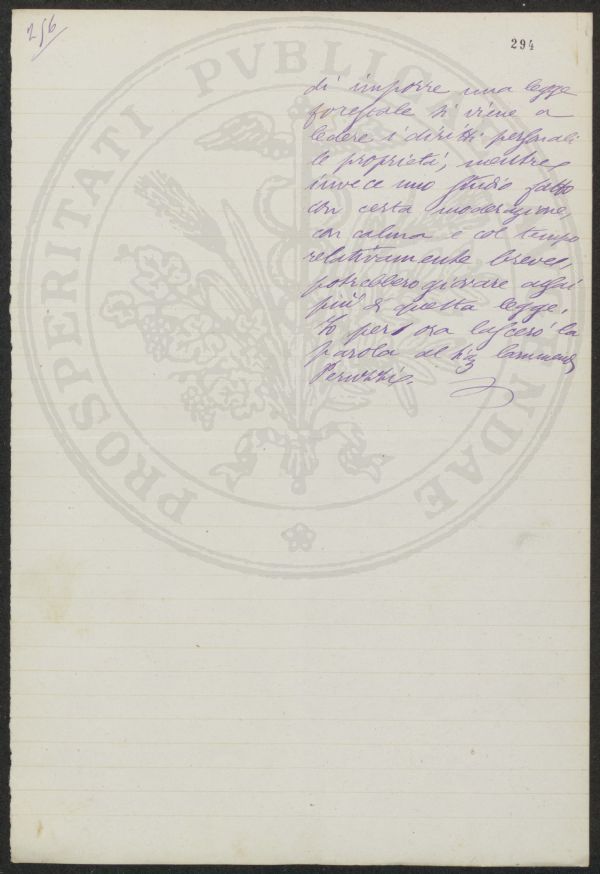 256
294
di imporre una legge
forestale si viene a
ledere i diritti personali
le proprietà, mentre
invece uno studio fatto
con certa moderazione,
con calma e col tempo
relativamente breve
potrebbero giovare assai
più di questa legge.
Io però ora lascerò la
parola al Sig
Peruzzi.
PROSPERITATI PVBLICAE